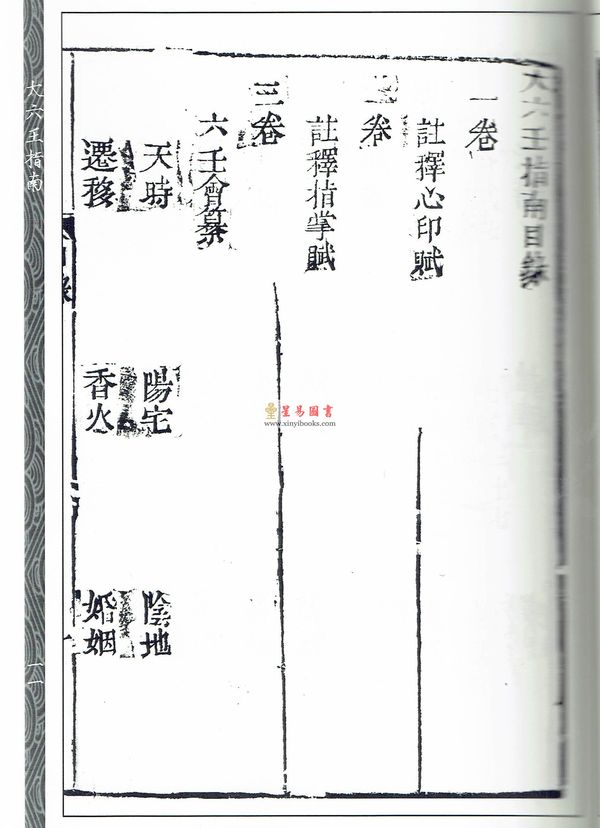 大六壬指南目錄
一卷
註釋心印賦
二卷
註釋指掌賦
三卷
六壬會纂
天時
陽宅
陰地
遷移
香火
婚姻
大六壬指南
二
星易圖書
www.xinyibooks.com